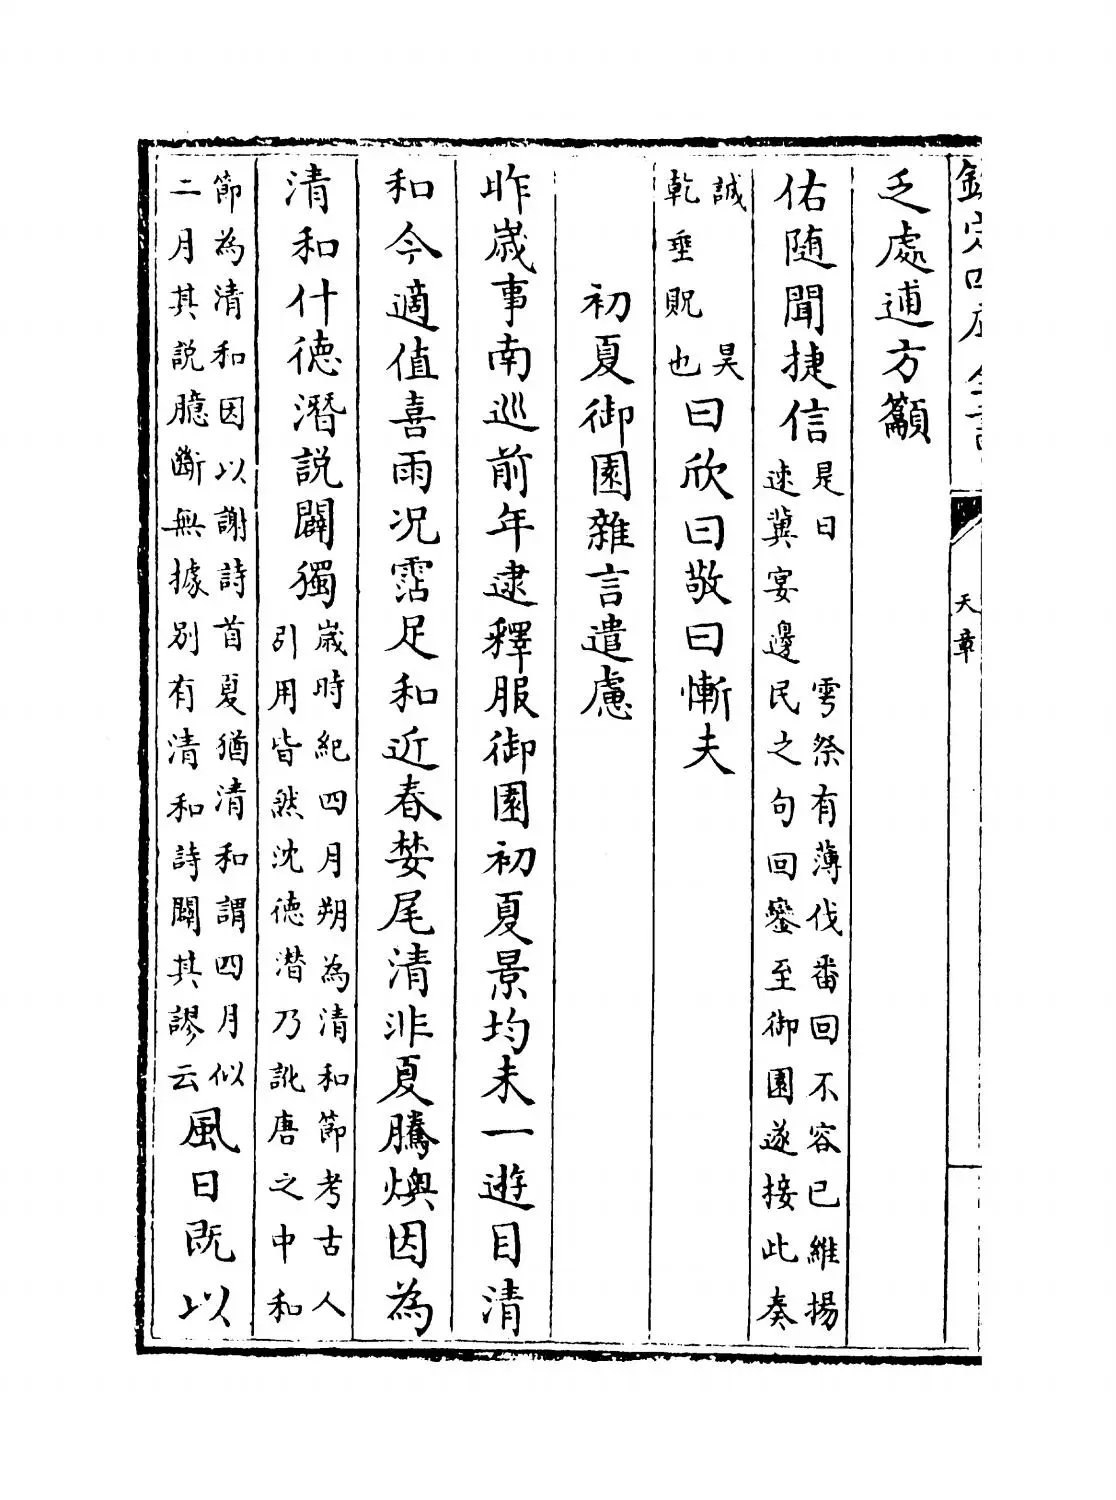 欽定四庫全書
天章
乏處逋方籲
佑随聞捷信
是日　雩祭有薄伐番回不容已維揚
速冀宴邊民之句回鑾至御園遂接此奏
誠　昊
乾垂貺也
曰欣曰敬曰慚夫
初夏御園雜言遣慮
昨嵗事南巡前年逮釋服御園初夏景均未一遊目清
和今適值喜雨况霑足和近春婪尾清非夏騰燠因為
清和什徳潛説闢獨
嵗時紀四月朔為清和節考古人
引用皆然沈徳潛乃訛唐之中和
節為清和因以謝詩首夏猶清和謂四月似
二月其説臆斷無據别有清和詩闢其謬云
風日既以